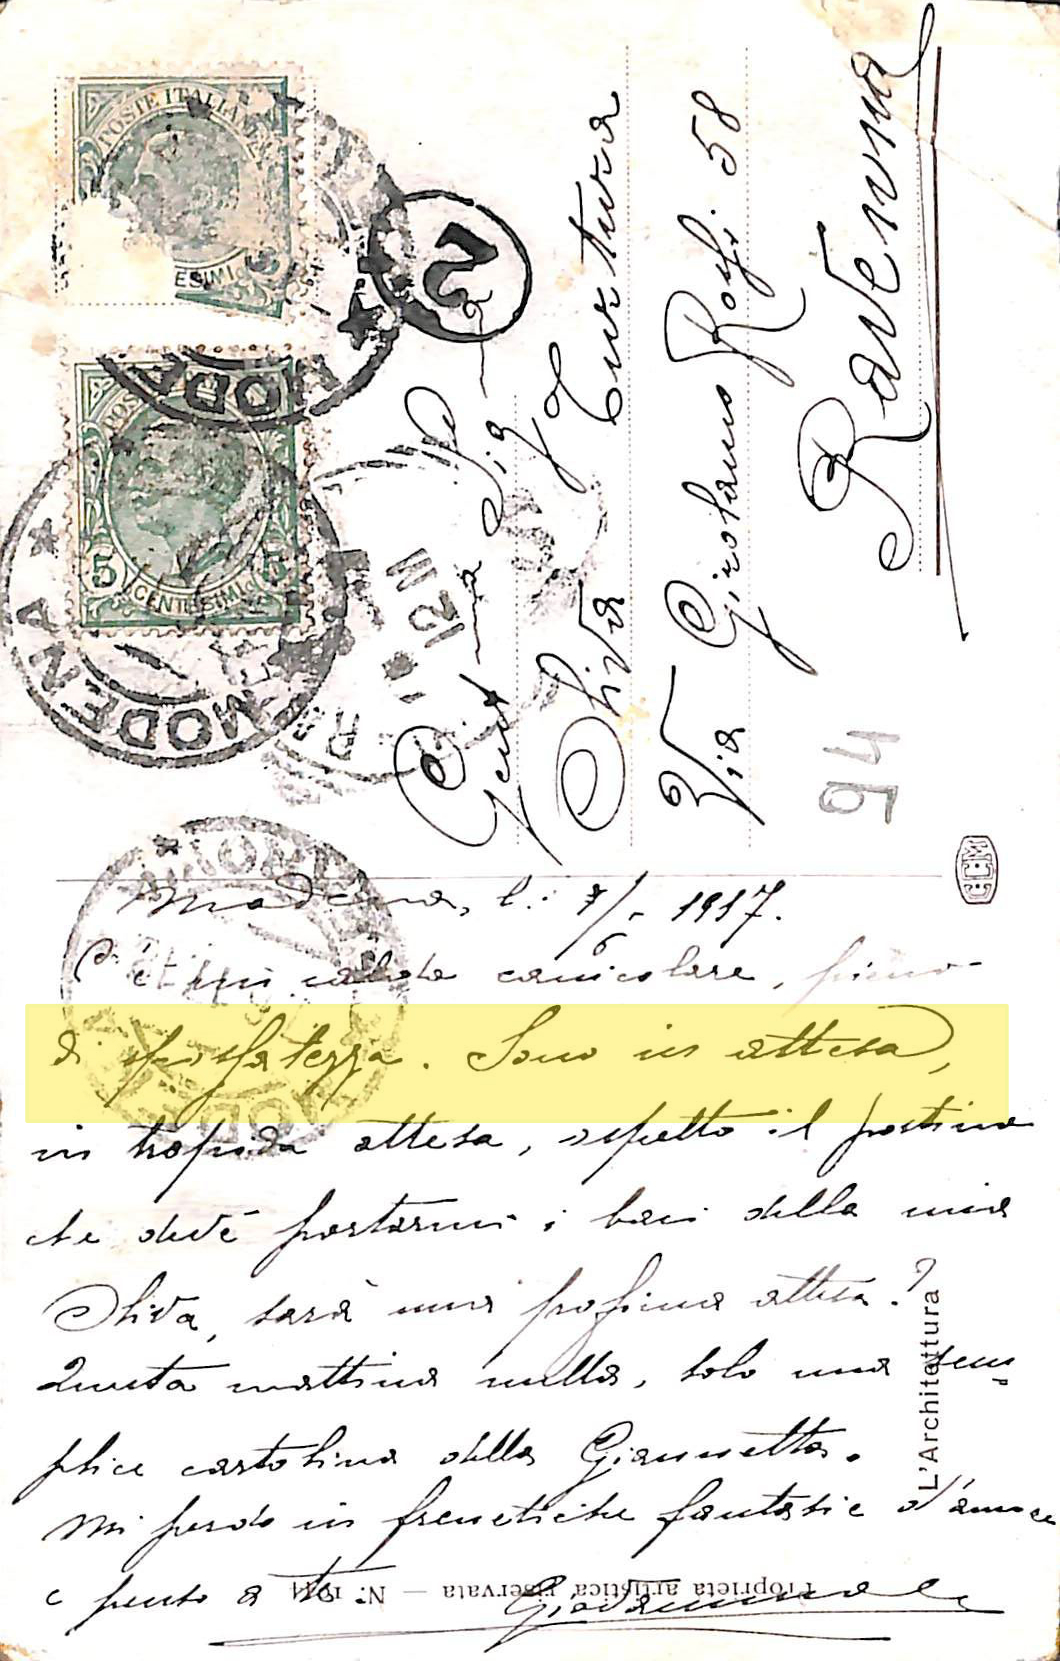 POSTE ITALIANE
ESIMI
POSTE
5 CENTESIMI 5
MODENA
MODENA
2
12 III
Gent.ma Sig.na
Oliva Turtura
Via Girolamo Rossi. 58
Ravenna
94
CCM
Modena, li: 7/6 1917.
C'è un sabato canicolare, pieno
di spossatezza. Sono in attesa,
in trepida attesa, aspetto il postino
che deve portarmi i baci della mia
Oliva, sarà una prossima attesa?
Questa mattina nulla, solo una sem
plice cartolina della Giannetta.
Mi perdo in frenetiche fantasie d'amore
e penso a te. Giovanni
L'Architettura
Proprietà artistica riservata — N.